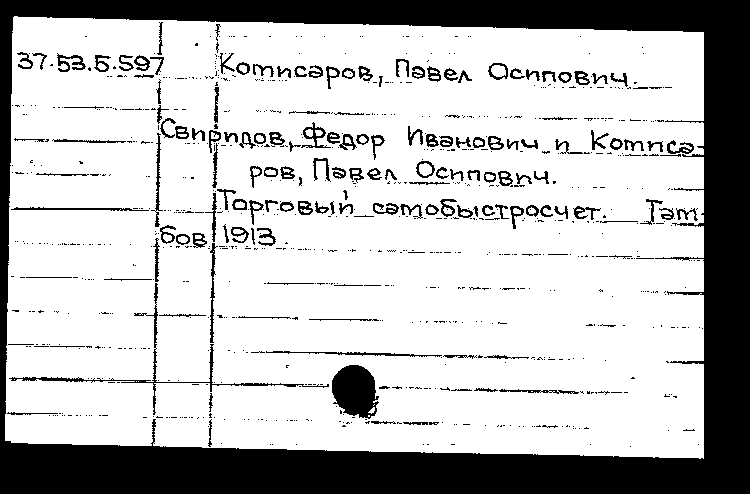 37.53.5.597 Комисаров, Павел Осипович.
Свиридов, Федор Иванович и Комиса-
ров, Павел Осипович.
Торговый самобыстросчет. Там-
бов 1913.